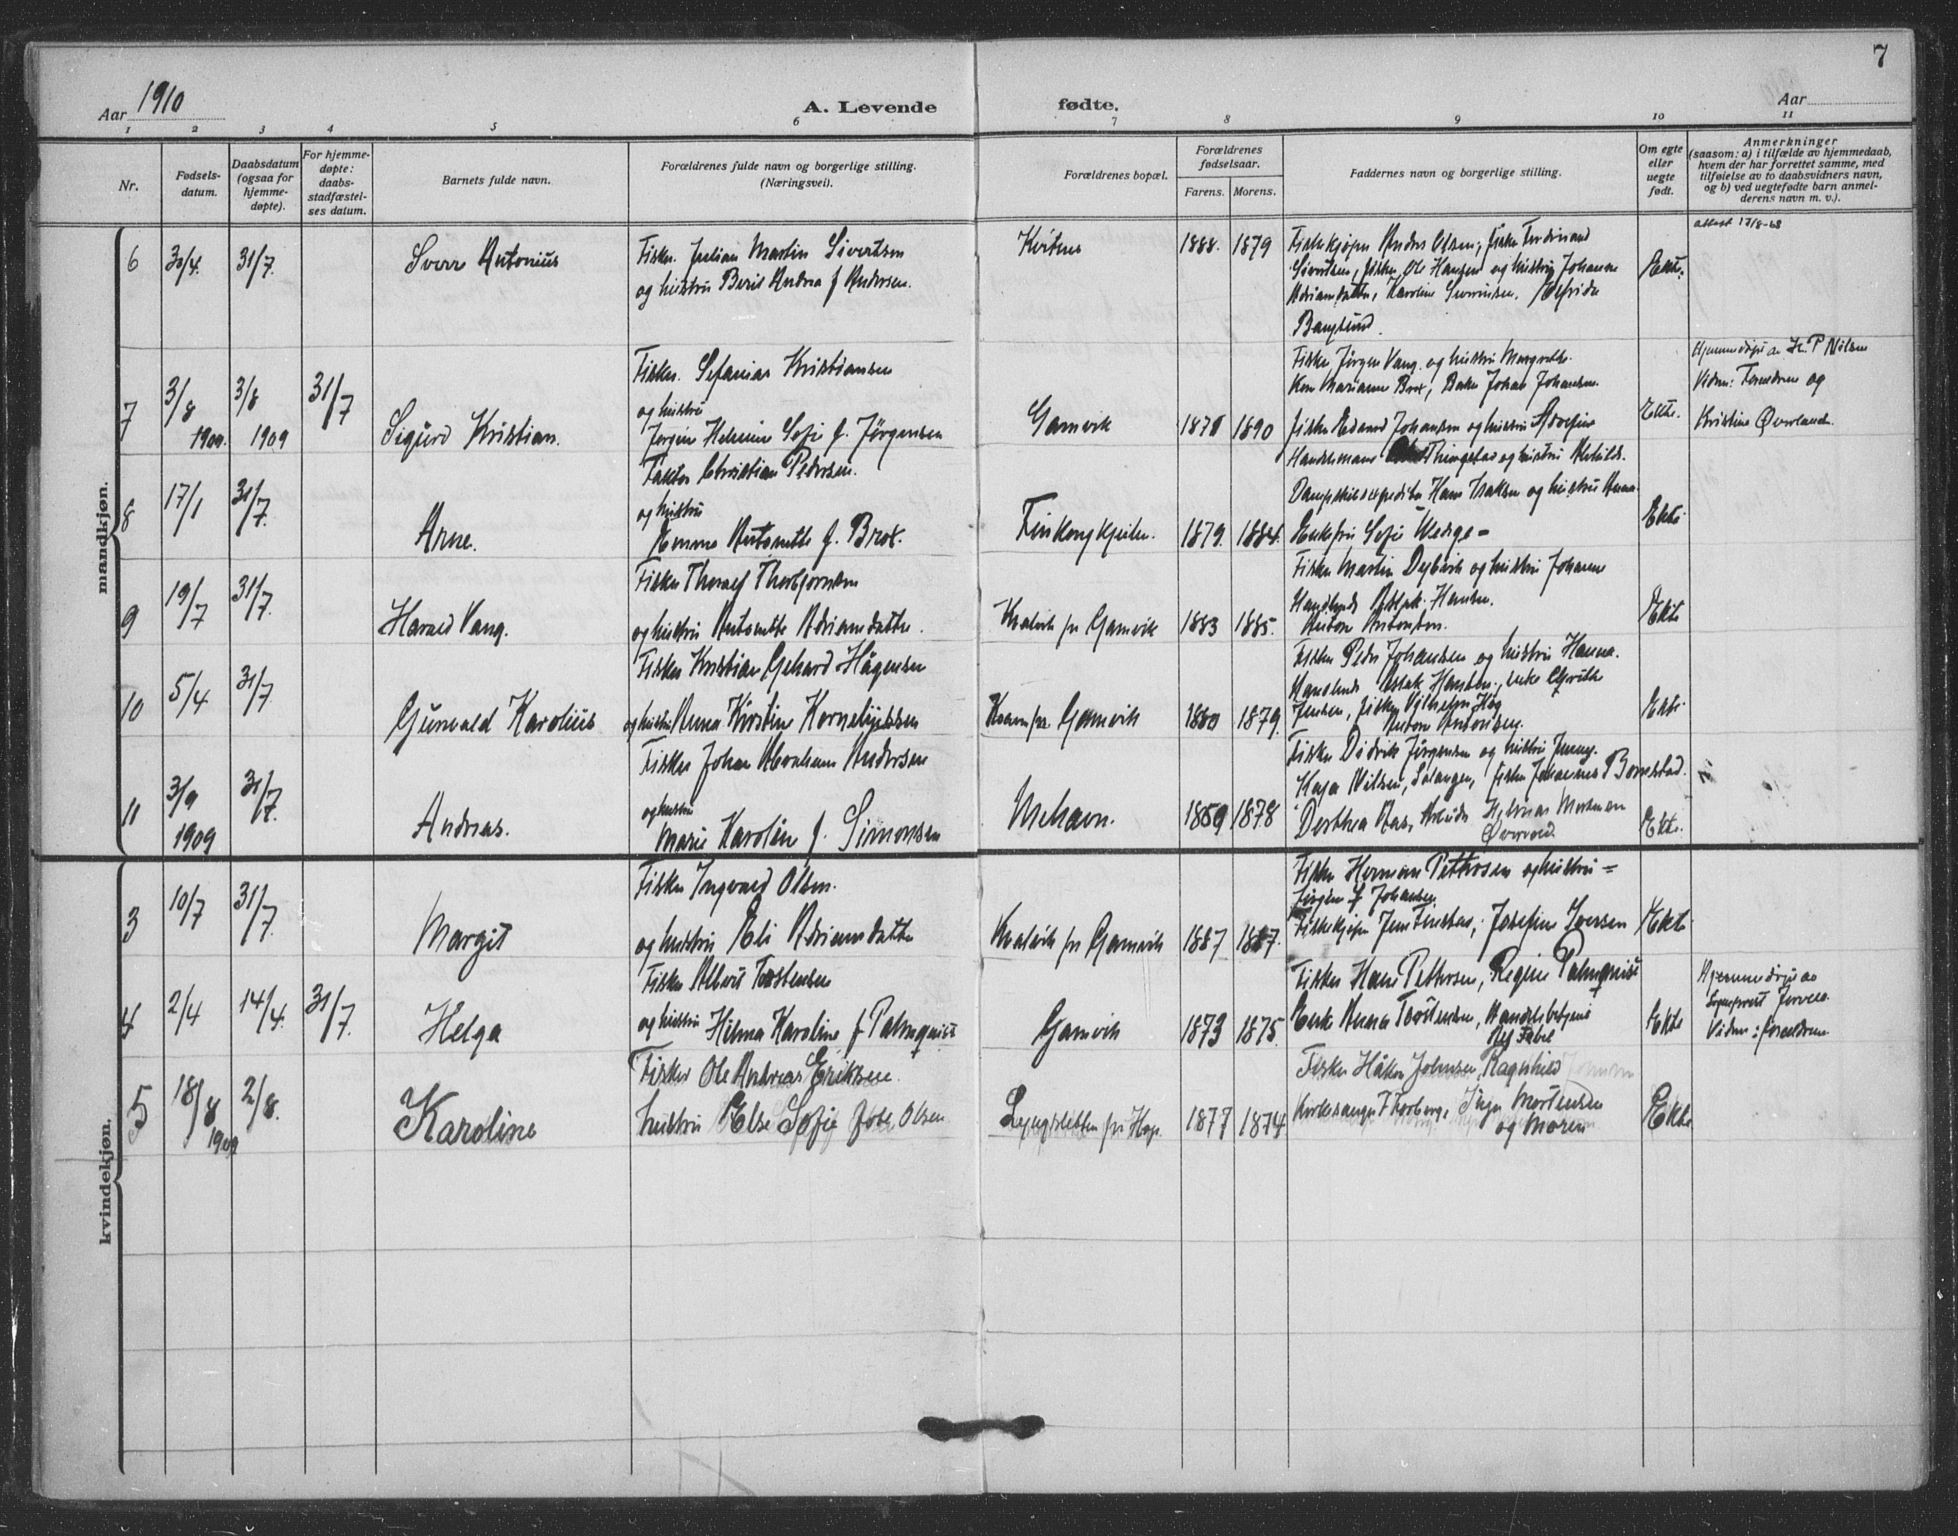 7
Aar 1910
A. Levende fødte.
Aar
1 2 3 4 5 6 7 8 9 10 11
Nr.
Fødsels-
datum.
Daabsdatum
(ogsaa for
hjemme-
døpte).
For hjemme-
døpte:
daabs-
stadfæstel-
ses datum.
Barnets fulde navn.
Forældrenes fulde navn og borgerlige stilling.
(Næringsvei).
Forældrenes bopæl.
Forældrenes
fødselsaar.
Farens. Morens.
Faddernes navn og borgerlige stilling.
Om egte
eller
uegte
født.
Anmerkninger
(saasom: a) i tilfælde av hjemmedaab,
hvem der har forrettet samme, med
tilføielse av to daabsvidners navn,
og b) ved uegtefødte barn anmel-
derens navn m. v.).
mandkjøn.
6 30/4. 31/7. Sverr Antonius
Fisker. Julian Martin Sivertsen
og hustru Berit Andrea f Andersen.
1888. 1879
Fiskekjøper Anders Olsen; fisker Ferdinand
Sivertsen, fisker Ole Hansen og hustru Johanne
Adriansdatter, Karoline Severinsen,
Ekte.
attest 17/8-68
7 3/8 1909. 3/8 1909 31/7 Sigurd Kristian.
Fisker. Sefanias Kristiansen
og hustru
Jørgine Helmine Sofie f. Jørgensen
Gamvik 1871 1890
Fisker Jørgen Vang. og hustru Margrethe.
Kone Marianne Brox, Baker Johan Johansen.
Fisker Edvard Johansen og hustru Adolfine
Ekte.
Hjemmedøpt av H. P Nilsen
Vidner: Forældrene og
Kristine Øverland.
8 17/1 31/7. Arne.
Faktor Christian Pedersen.
og hustru
Emma Antonette f. Brox.
Finkongkjeilen. 1879. 1884.
Handelsmand Thingstad og hustru Mathilde.
Dampskibsexpeditør Hans Isaksen og hustru Anna
Enkefru Sofie Wedege
Ekte
9 19/7 31/7. Harald Vang.
Fisker Thoralf Thorbjørnsen
og hustru Antonette Adriansdatter.
Kvalvik pr Gamvik 1883 1885.
Fisker Martin Dybvik og hustru Johanne
Handlende Aslak Hansen.
Anton Antonsen.
Ekte
10 5/4 31/7. Gunvald Karolius
Fisker Kristian Gehard Hågensen
og hustru Anna Kirstine Korneliussen
pr. Gamvik 1880 1879.
Fisker Peder Johansen og hustru Hanna.
Handlende Aslak Hansen., enke Grethe
Jensen, fisker Vilhelm Krog
Anton Antonsen.
Ekte
11 3/9 1909 31/7. Andreas.
Fisker Johan Abraham Andersen
og hustru
Marie Karoline f. Simonsen
Mehavn. 1859 1878
Fisker Didrik Jørgensen og hustru Jenny.
Kaja Nilsen, Salangen, fisker Johannes Bonestad.
Dorthea Aas, Arbeider Hjelmar Mortensen
Øvervold
Ekte.
kvindekjøn.
3 10/7 31/7. Margit
Fisker Ingvald Olsen.
og hustru Eli Adriansdatter
Kvalvik pr Gamvik 1887 1887.
Fisker Herman Pettersen og hustru =
Jørgine f Johansen.
Fiskekjøper Jens Finstad; Josefine Iversen
Ekte
4 2/4 14/4. 31/7. Helga
Fisker Albert Torstensen
og hustru Hilma Karoline f Palmquist
Gamvik 1873 1875.
Fisker Hans Pettersen, Regine Palmquist
Enke Anna Torstensen, Handelsbetjent
Alf Fabel
Ekte
Hjemmedøpt av
Sogneprest Jervell.
Vidner: forældrene
5 18/8 1909 2/8. Karoline
Fisker Ole Andreas Eriksen.
hustru Else Sofie født Olsen
pr Hop. 1877 1874
Fisker Håkon Johnsen, Ragnhild Johnsen
Kirkesanger Thorberg, Inga Mortensen
og moren
Ekte